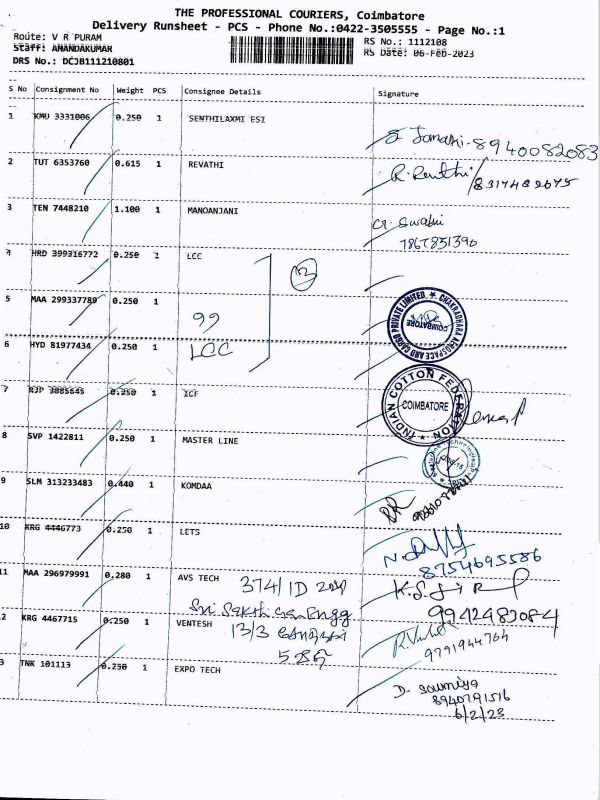 THE PROFESSIONAL COURIERS, Coimbatore
Delivery Runsheet - PCS - Phone No.:0422-3505555 - Page No.:1
Route: V R PURAM
RS No.: 1112108
Staff: ANANDAKUMAR
RS Date: 06-Feb-2023
DRS No.: DCJB111210801
S No Consignment No Weight PCS Consignee Details Signature
1 KMU 3331006 0.250 1 SENTHILAXMI ESI
8940082083
2 TUT 6353760 0.615 1 REVATHI
R. Revathi / 8317482675
3 TEN 7448210 1.100 1 MANOANJANI
G. Swathi
7867851390
4 HRD 399316772 0.250 1 LCC
5 MAA 299337789 0.250 1
CHAKRADHARA AEROSPACE AND CARGO PRIVATE LIMITED. ★
COIMBATORE
6 HYD 81977434 0.250 1 LCC
7 RJP 3085645 0.250 1 ICF
INDIAN COTTON FEDERATION ★
COIMBATORE
8 SVP 1422811 0.250 1 MASTER LINE
9 SLM 313233483 0.440 1 KOMDAA
10 KRG 4446773 0.250 1 LETS
8754695586
11 MAA 296979991 0.280 1 AVS TECH
374/1D
Sri Sakthi Engg
9942483084
2 KRG 4467715 0.250 1 VENTESH
13/3
9791944764
3 TNK 101113 0.250 1 EXPO TECH
D. Soumiya
8940791516
6/2/23